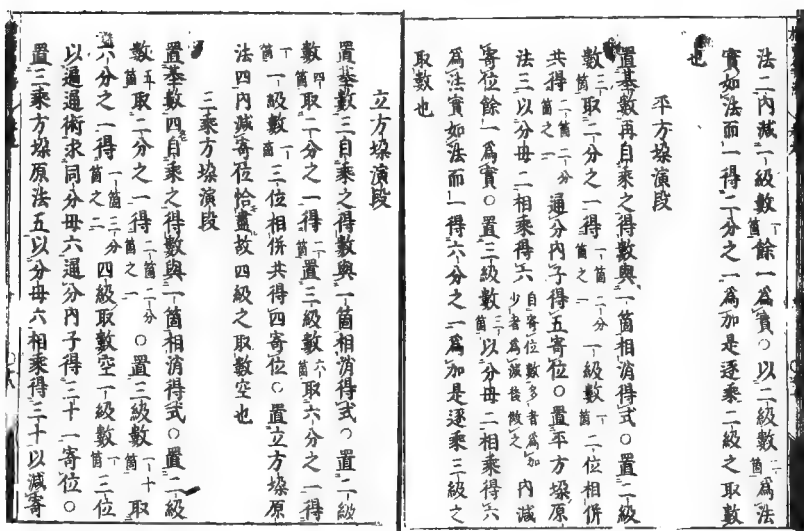 法二内減一級數一箇餘一爲實○以二級數二箇爲法
實如法而一得二分之一爲加是逐乘二級之取數
也
平方垜演段
置基數再自乘之得數與一箇相消得式○置二級
數三箇取二分之一得一箇二分箇之一一級數一箇二位相併
共得二箇二分箇之一通分内子得五寄位○置平方垜原
法三以分母二相乘得六自寄位數多者爲加少者爲減後倣之内減
寄位餘一爲實○置三級數三箇以分母二相乘得六
爲法實如法而一得六分之一爲加是逐乘三級之
取數也
立方垜演段
置基數三自乘之得數與一箇相消得式○置二級
數四箇取二分之一得二箇置三級數六箇取六分之一得
一箇一級數一箇三位相併共得四寄位○置立方垜原
法四内減寄位恰盡故四級之取數空也
三乘方垜演段
置基數四自乘之得數與一箇相消得式○置二級
數五箇取二分之一得二箇二分箇之一○置三級數一十箇取
六分之一得一箇三分箇之二四級取數空一級數一箇三位
以通術求同分母六通分内子得三十一寄位○
置三乘方垜原法五以分母六相乘得三十以減寄